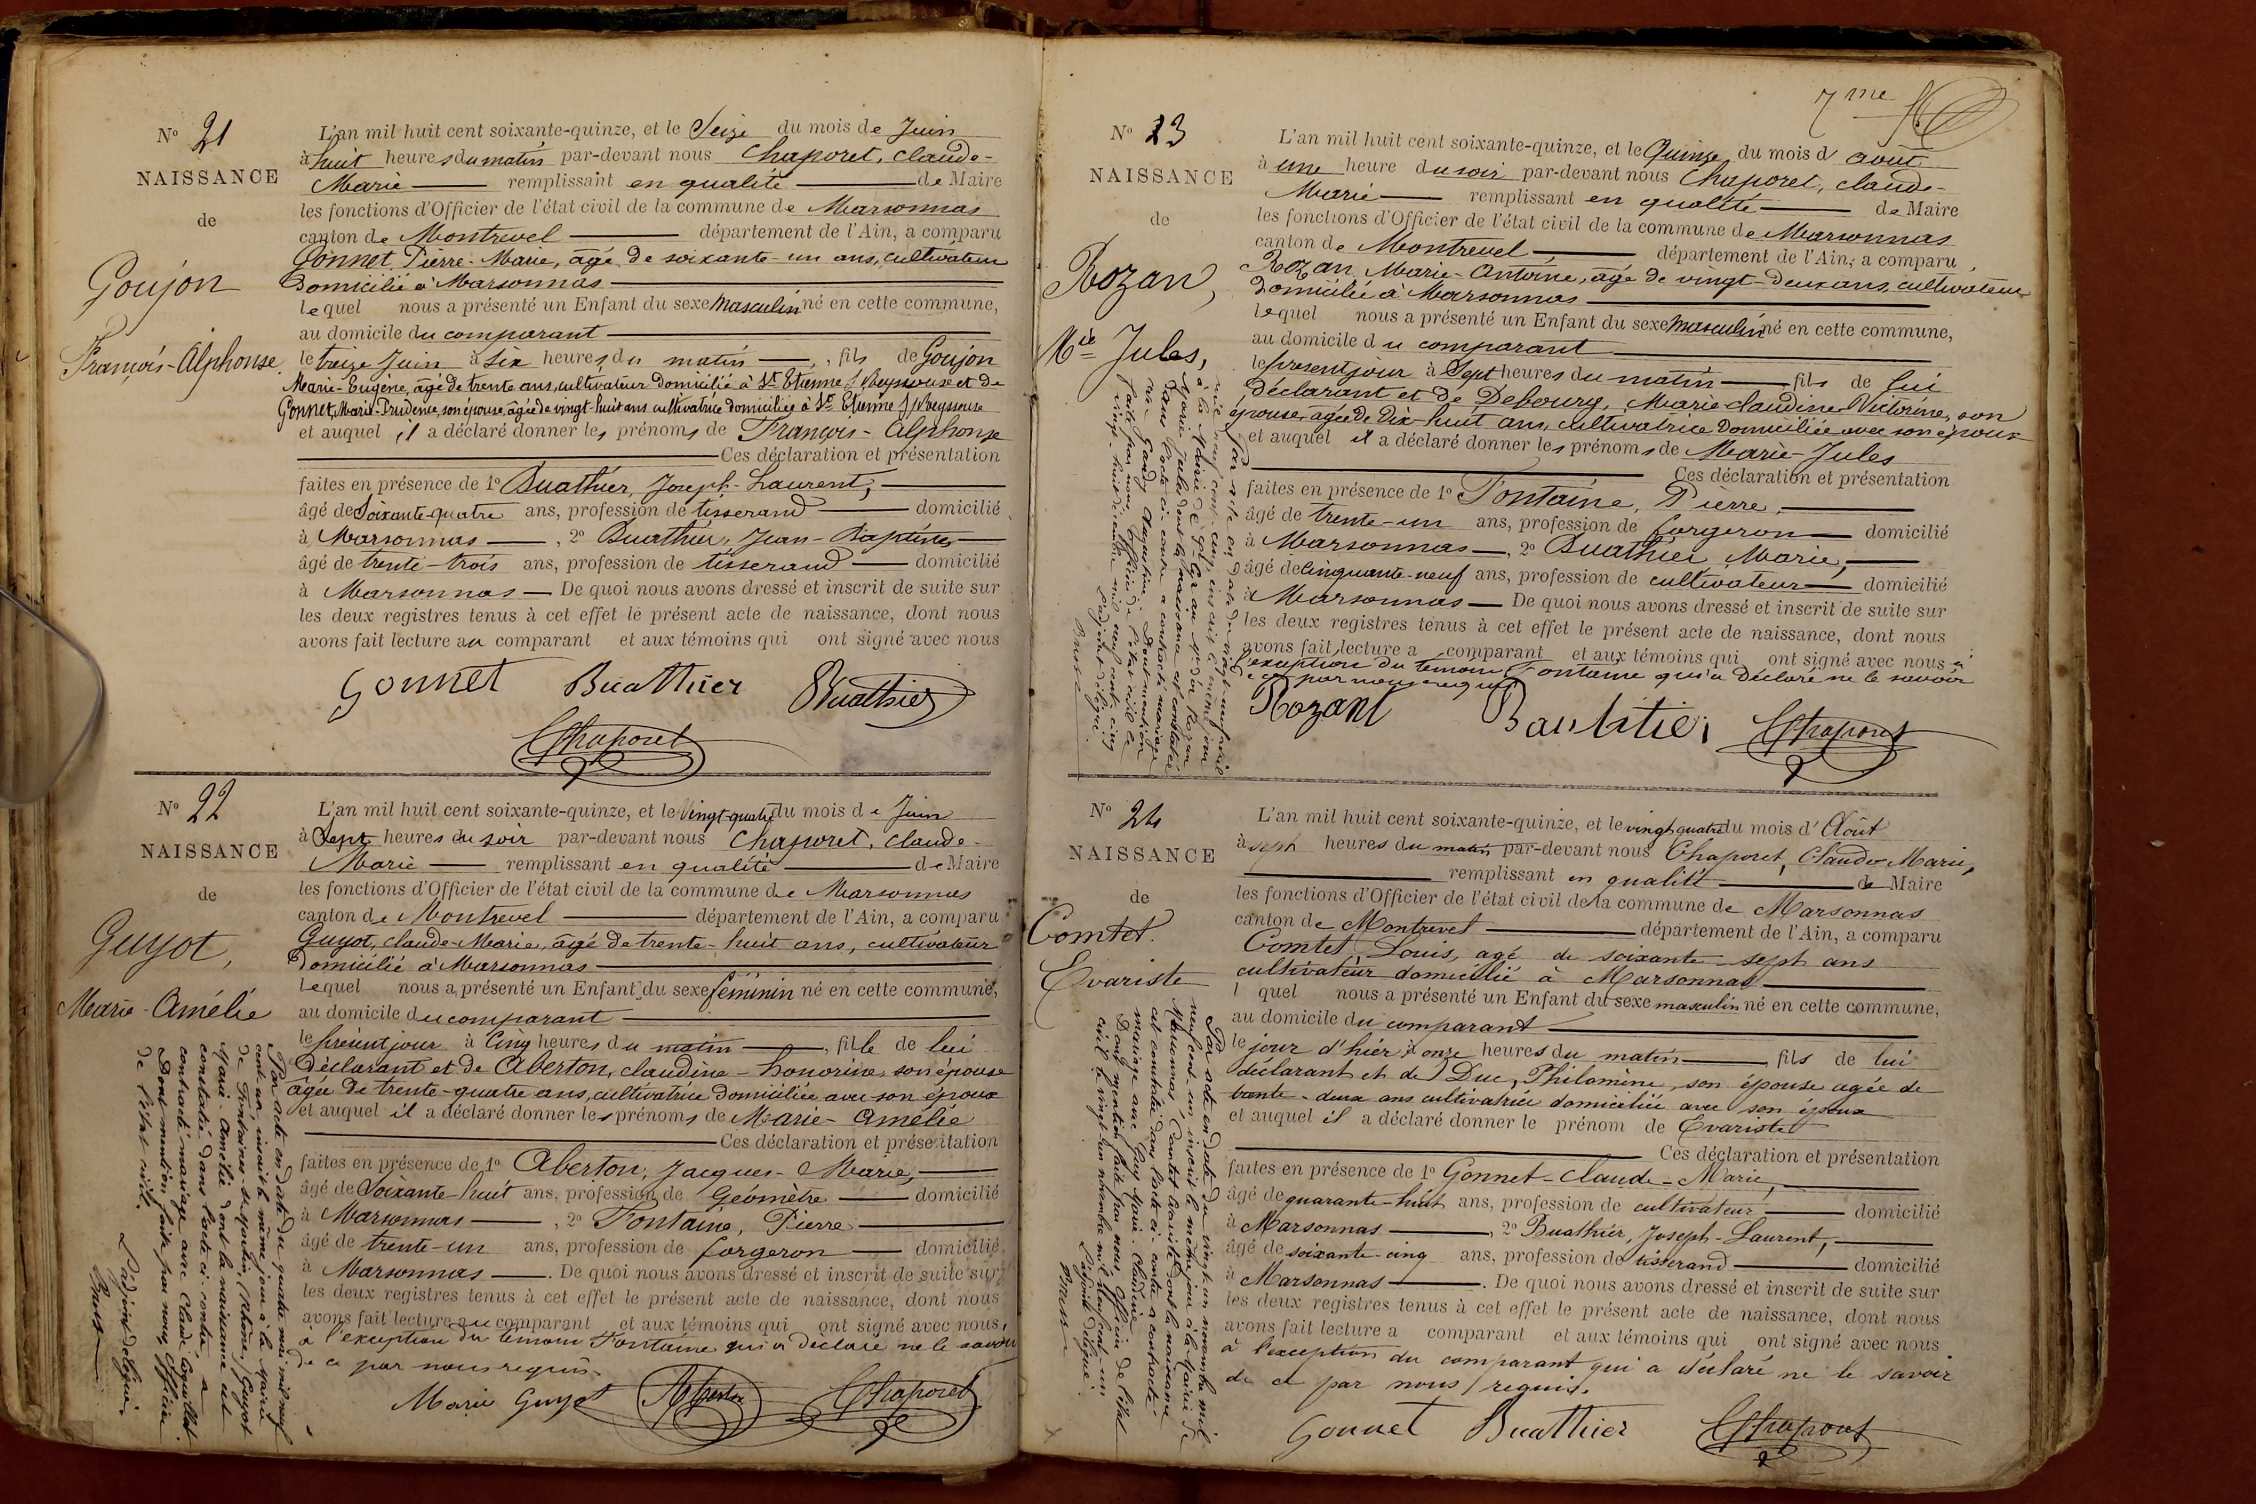 N° 21
NAISSANCE
de
Goujon
François-Alphonse.
L'an mil huit cent soixante-quinze, et le Seize du mois de Juin
à huit heures du matin par-devant nous Chaporet, claude-
Marie remplissant en qualité de Maire
les fonctions d'Officier de l'état civil de la commune de Marsonnas
canton de Montrevel département de l'Ain, a comparu
Gonnet Pierre-Marie, âgé de soixante-un ans, cultivateur
domicilié à Marsonnas
lequel nous a présenté un Enfant du sexe masculin né en cette commune,
au domicile du comparant
le treize Juin à six heures du matin, fils de Goujon
Marie-Eugène, âgé de trente ans, cultivateur domicilié à St Etienne s/ Reyssouze et de
Gonnet, Marie-Prudence, son épouse, âgée de vingt-huit ans cultivatrice domiciliée à St Etienne s/ Reyssouze
et auquel il a déclaré donner les prénoms de François-Alphonse
Ces déclaration et présentation
faites en présence de 1° Buathier, Joseph-Laurent,
âgé de Soixante-quatre ans, profession de tisserand domicilié
à Marsonnas, 2° Buathier, Jean-Baptiste
âgé de trente-trois ans, profession de tisserand domicilié
à Marsonnas De quoi nous avons dressé et inscrit de suite sur
les deux registres tenus à cet effet le présent acte de naissance, dont nous
avons fait lecture au comparant et aux témoins qui ont signé avec nous
Gonnet Buathier Buathier
Chaporet
N° 22
NAISSANCE
de
Guyot,
Marie-Amélie
L'an mil huit cent soixante-quinze, et le Vingt-quatre du mois de Juin
à Sept heures du soir par-devant nous Chaporet, claude-
Marie remplissant en qualité de Maire
les fonctions d'Officier de l'état civil de la commune de Marsonnas
canton de Montrevel département de l'Ain, a comparu
Guyot, claude-Marie, âgé de trente-huit ans, cultivateur
domicilié à Marsonnas
lequel nous a présenté un Enfant du sexe féminin né en cette commune,
au domicile du comparant
le présent jour à Cinq heures du matin, fille de lui
déclarant et de Aberton, claudine-honorine, son épouse
âgée de trente-quatre ans, cultivatrice domiciliée avec son époux
et auquel il a déclaré donner les prénoms de Marie-Amélie
Ces déclaration et présentation
faites en présence de 1° Aberton, Jacques-Marie,
âgé de Soixante-huit ans, profession de Géomètre domicilié
à Marsonnas, 2° Fontaine, Pierre
âgé de trente-un ans, profession de forgeron domicilié
à Marsonnas. De quoi nous avons dressé et inscrit de suite sur
les deux registres tenus à cet effet le présent acte de naissance, dont nous
avons fait lecture au comparant et aux témoins qui ont signé avec nous,
à l'exception du témoin Fontaine qui a déclaré ne le savoir
de ce par nous requis.
Marie Guyot Aberton Chaporet
Par acte en date du quatre mai mil neuf
cent un inscrit le même jour à la Mairie
de Guyot
Marie-Amélie dont la naissance est
constatée dans l'acte ci-contre, a
contracté mariage avec Claude
Dont mention faite par nous Officier
de l'état civil.
L'adjoint délégué,
7me
N° 23
NAISSANCE
de
Rozan,
Mie Jules,
L'an mil huit cent soixante-quinze, et le Quinze du mois d août
à une heure du soir par-devant nous Chaporet, claude-
Marie remplissant en qualité de Maire
les fonctions d'Officier de l'état civil de la commune de Marsonnas
canton de Montrevel département de l'Ain, a comparu
Rozan, Marie-Antoine, âgé de vingt-deux ans, cultivateur
domicilié à Marsonnas
lequel nous a présenté un Enfant du sexe masculin né en cette commune,
au domicile du comparant
le présent jour à Sept heures du matin fils de lui
déclarant et de Debourg, Marie-claudine-Victorine, son
épouse, âgée de Dix-huit ans, cultivatrice domiciliée avec son époux
et auquel il a déclaré donner les prénoms de Marie-Jules
Ces déclaration et présentation
faites en présence de 1° Fontaine, Pierre,
âgé de trente-un ans, profession de forgeron domicilié
à Marsonnas, 2° Buathier, Marie,
âgé de Cinquante-neuf ans, profession de cultivateur domicilié
à Marsonnas De quoi nous avons dressé et inscrit de suite sur
les deux registres tenus à cet effet le présent acte de naissance, dont nous
avons fait lecture a comparant et aux témoins qui ont signé avec nous à
l'exception du témoin Fontaine qui a déclaré ne le savoir
de ce par nous requis
Rozant Chaporet
Par acte en date du vingt-neuf avril
mil neuf cent cinq inscrit le même jour
à la Mairie de
Marie Jules dont la naissance est constatée
dans l'acte ci-contre a contracté mariage
avec
Dont mention
faite par nous Officier de l'état civil le
vingt-huit décembre mil neuf cent cinq
L'adjoint délégué.
N° 24
NAISSANCE
de
Comtet.
Evariste
L'an mil huit cent soixante-quinze, et le vingt quatre du mois d'Août
à sept heures du matin par-devant nous Chaporet, Claude-Marie,
remplissant en qualité de Maire
les fonctions d'Officier de l'état civil de la commune de Marsonnas
canton de Montrevel département de l'Ain, a comparu
Comtet, Louis, agé de soixante sept ans
cultivateur domicilié à Marsonnas
l quel nous a présenté un Enfant du sexe masculin né en cette commune,
au domicile du comparant
le jour d'hier à onze heures du matin, fils de lui
déclarant et de Duc, Philomène, son épouse agée de
trente-deux ans cultivatrice domiciliée avec son époux
et auquel il a déclaré donner le prénom de Evariste
Ces déclaration et présentation
faites en présence de 1° Gonnet-Claude-Marie,
âgé de quarante-huit ans, profession de cultivateur domicilié
à Marsonnas, 2° Buathier, Joseph-Laurent,
âgé de soixante-cinq ans, profession de tisserand domicilié
à Marsonnas. De quoi nous avons dressé et inscrit de suite sur
les deux registres tenus à cet effet le présent acte de naissance, dont nous
avons fait lecture a comparant et aux témoins qui ont signé avec nous
à l'exception du comparant qui a déclaré ne le savoir
de ce par nous requis.
Gonnet Buathier Chaporet
Par acte en date du vingt-un novembre mil
neuf cent-un inscrit le même jour à la Mairie de
Marsonnas, Comtet Evariste dont la naissance
est constatée dans l'acte ci-contre a contracté
mariage avec Guy Marie-Claudine
Dont mention faite par nous Officier de l'état
civil le vingt-un novembre mil neuf cent-un
L'adjoint délégué.